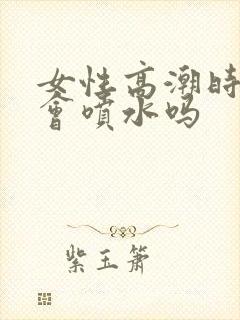 女性高潮时
會噴水吗
紫玉箫